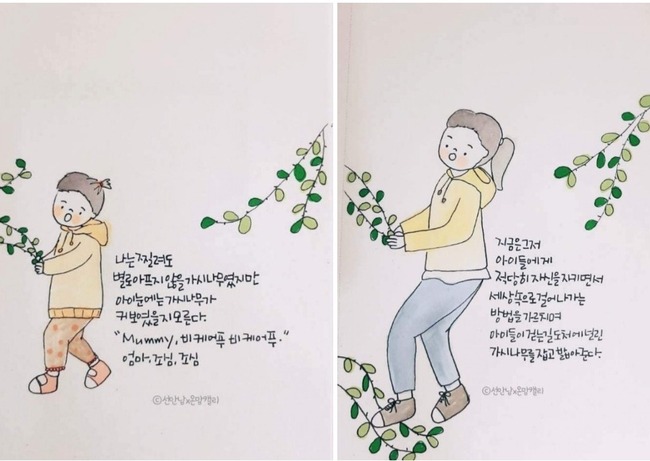 나는 찔려도
별로 아프지 않을 가시나무였지만
아이눈에는 가시나무가
커보였을지 모른다.
"Mummy, 비 케어푸 비 케어푸."
엄마, 조심, 조심
©선만남x온맘캘리
지금은 그저
아이들에게
적당히 자신을 지키면서
세상속으로 걸어나가는
방법을 가르치며
아이들이 걷는 길 도처에 널린
가시나무를 잡고 밟아준다.
©선만남x온맘캘리